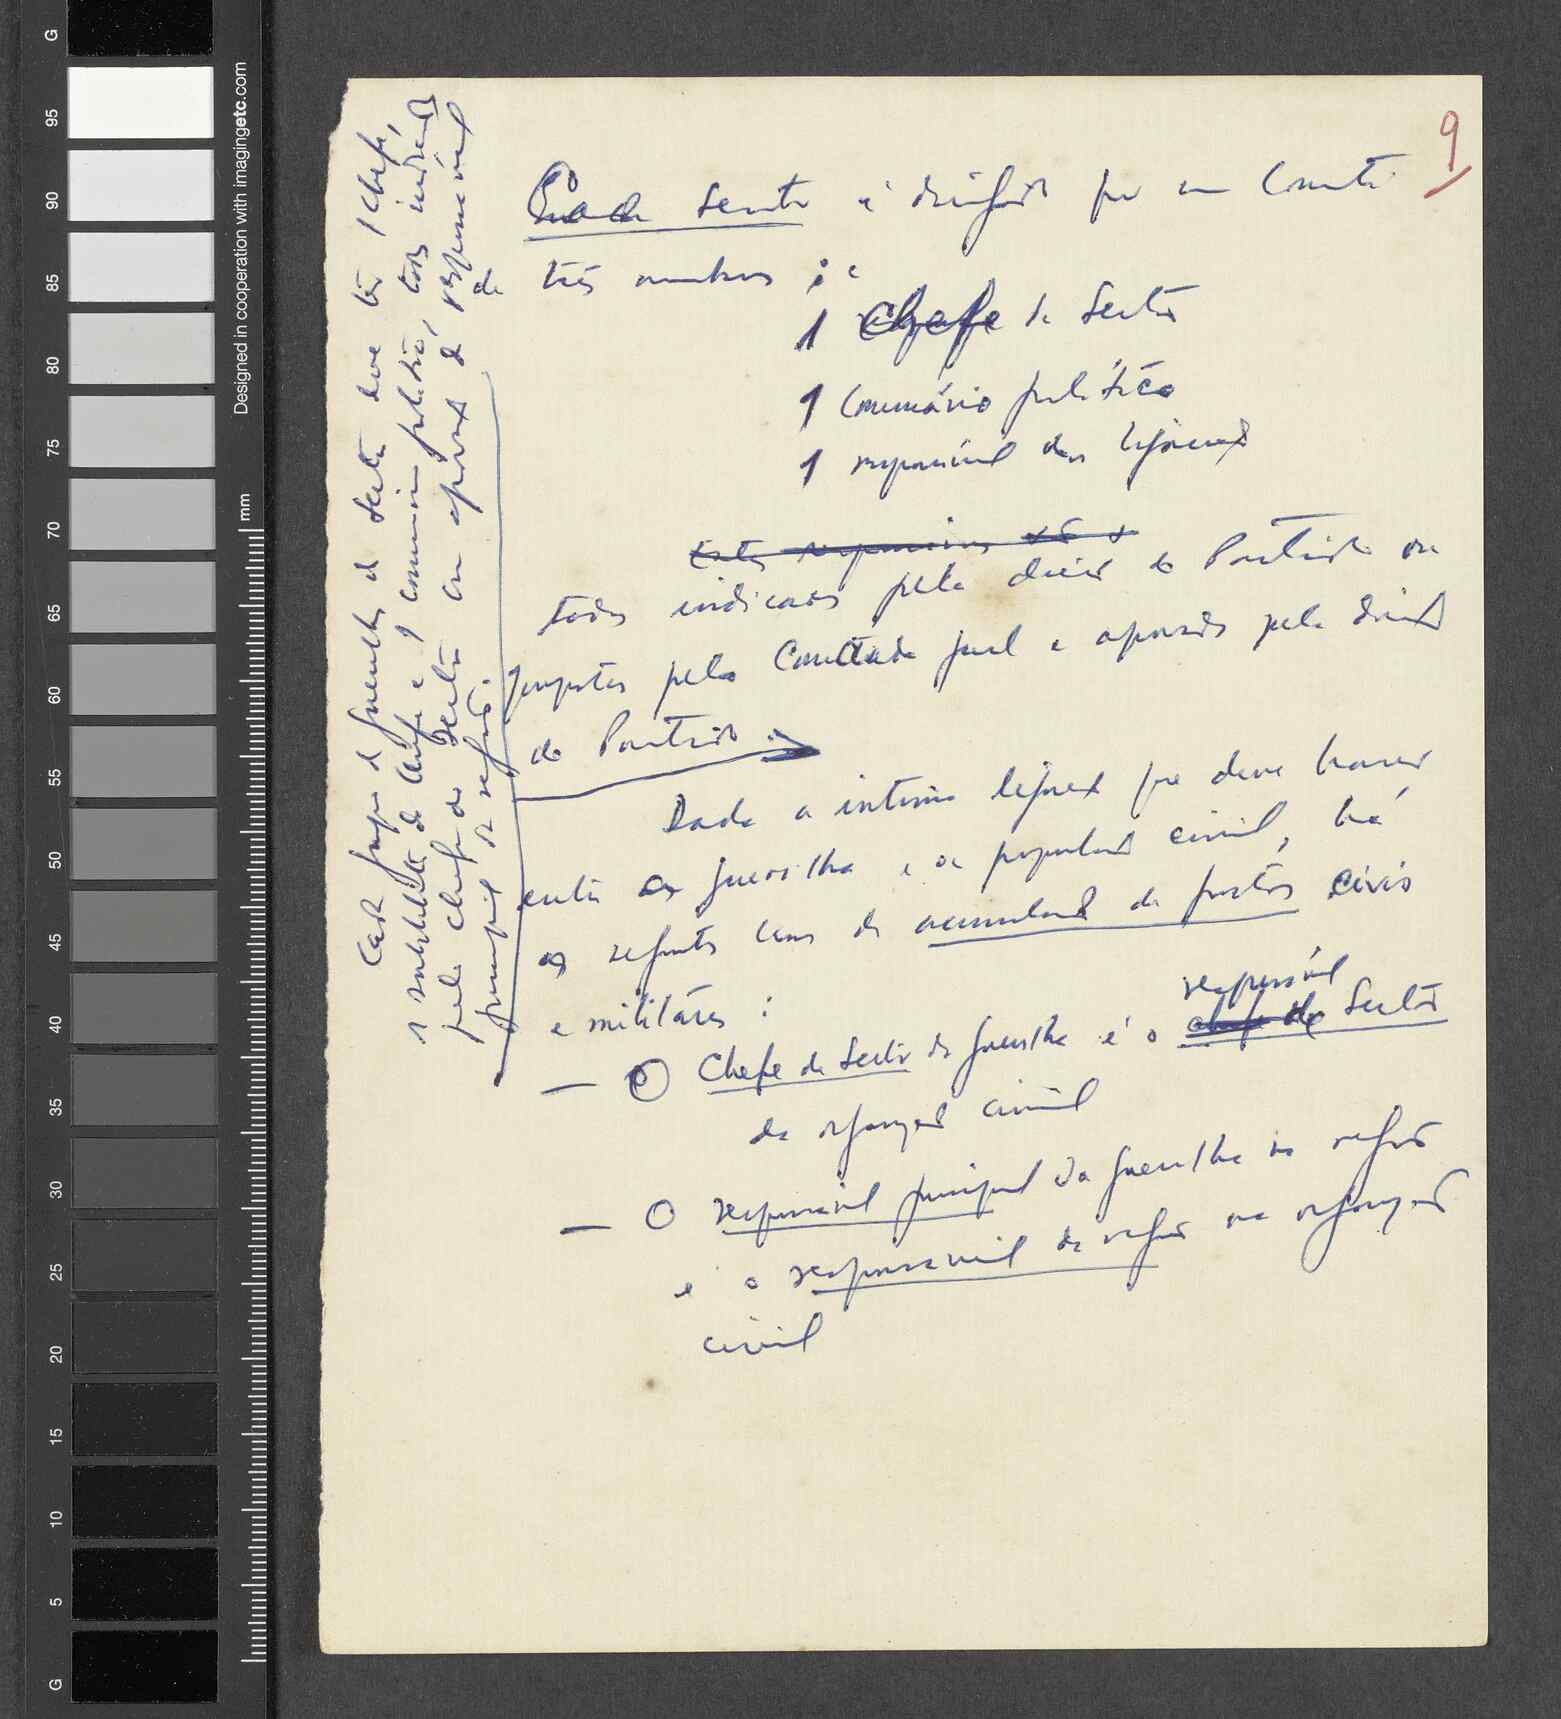 9
Cada sector é dirigido por um Comité
de três membros :
1 Chefe de Sector
1 Comissário político
1 responsável das ligações
Estes responsáveis são
todos indicados pela direcção do Partido ou
propostos pelo Comitado geral e aprovados pela direcção
do Partido.
Dada a íntima ligação que deve haver
entre a guerrilha e a população civil, há
os seguintes casos de acumulação de postos civis
e militares :
responsável
— O Chefe de Sector da guerrilha é o chefe de Sector
da organização civil
— O responsável principal da guerrilha na região
é o responsável da região na organização
civil
Cada grupo de guerrilha do Sector deve ter 1 chefe,
1 substituto do chefe e 1 comissário político, todos indicados
pelo chefe do Sector com aprovação do responsável
principal da região.
Designed in cooperation with imagingetc.com
mm
G
95
90
85
80
75
70
65
60
55
50
45
40
35
30
25
20
15
10
5
G